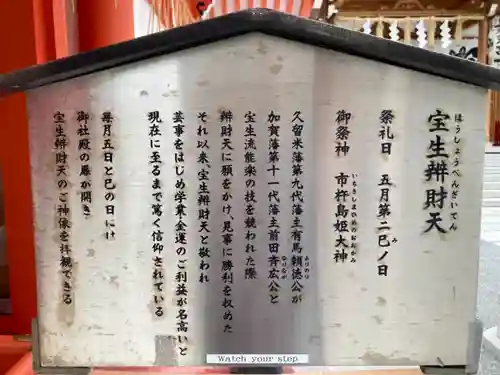 宝生辨財天
ほうしょうべんざいてん
祭礼日 五月第二巳ノ日
み
御祭神 市杵島姫大神
いちきしまひめのおおかみ
久留米藩第九代藩主有馬頼徳公が
よりのり
加賀藩第十一代藩主前田斉広公と
なりなが
宝生流能楽の技を競われた際
辨財天に願をかけ、見事に勝利を収めた
それ以来、宝生辨財天と敬われ
芸事をはじめ学業金運のご利益が名高いと
現在に至るまで篤く信仰されている
毎月五日と巳の日には
御社殿の扉が開き
宝生辨財天のご神像を拝観できる
Watch your step